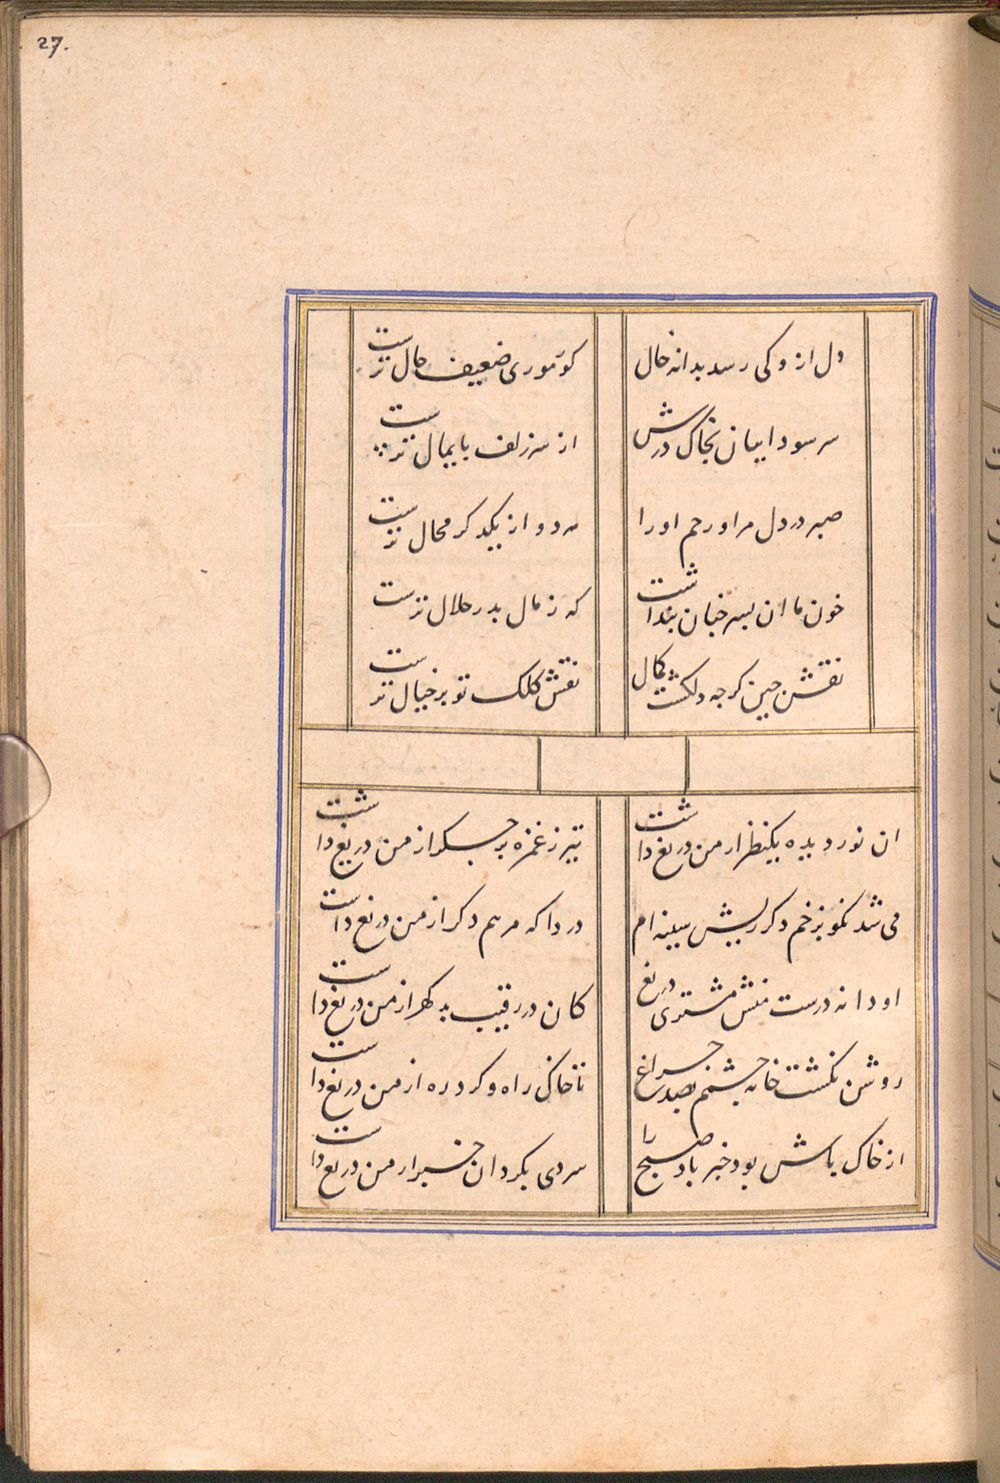 27.
دل از و کی رسد بدانه خال
کو موری ضعیف حال ترست
سر سوداییان بخاک درش
از سر زلف پایمال ترست
صبر در دل مرا و رحم او را
هر دو از یکدکر محال ترست
خون ما ان پسر خیان پنداشت
که ز مال پدر حلال ترست
نقش چین کرجه دلکشت کمال
نقش کلک تو بر خیال ترست
ان نور دیده یکنظر از من دریغ داشت
تیر ز غمزه بر جکر از من دریغ داشت
می شد نکو بزخم دکر ریش سینه ام
دردا که مرهم دکر از من دریغ داست
او دانه درست منش مشتری دریغ
کان در رقیب بد کهر از من دریغ داست
روشن نکشت خانه چشمم بصد چراغ
تا خاک راه و کرد ره از من دریغ داست
از خاک پاش بود خبر باد صبح را
سردی بکرد ان خبر از من دریغ داست